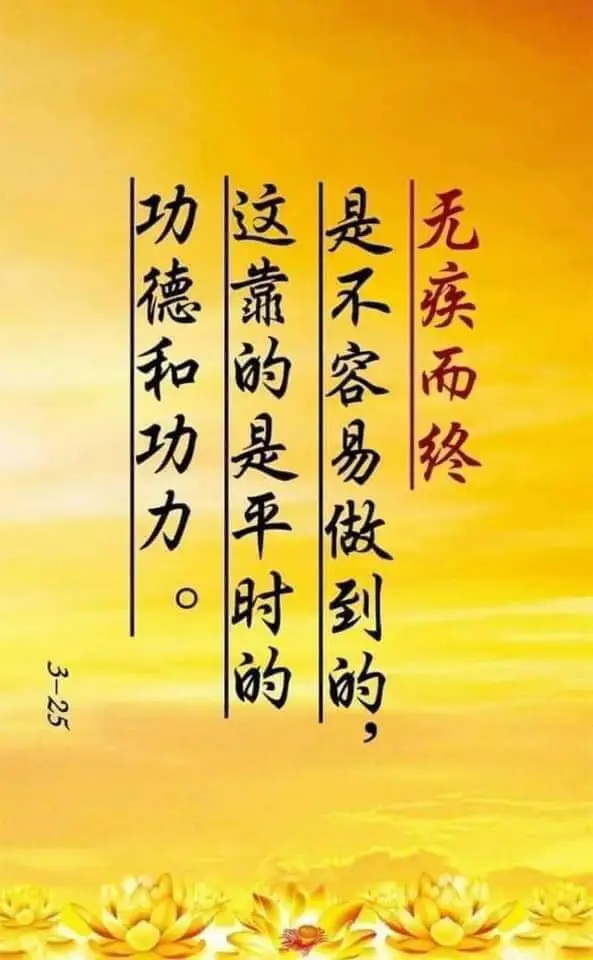 无疾而终
是不容易做到的，
这靠的是平时的
功德和功力。
3-25